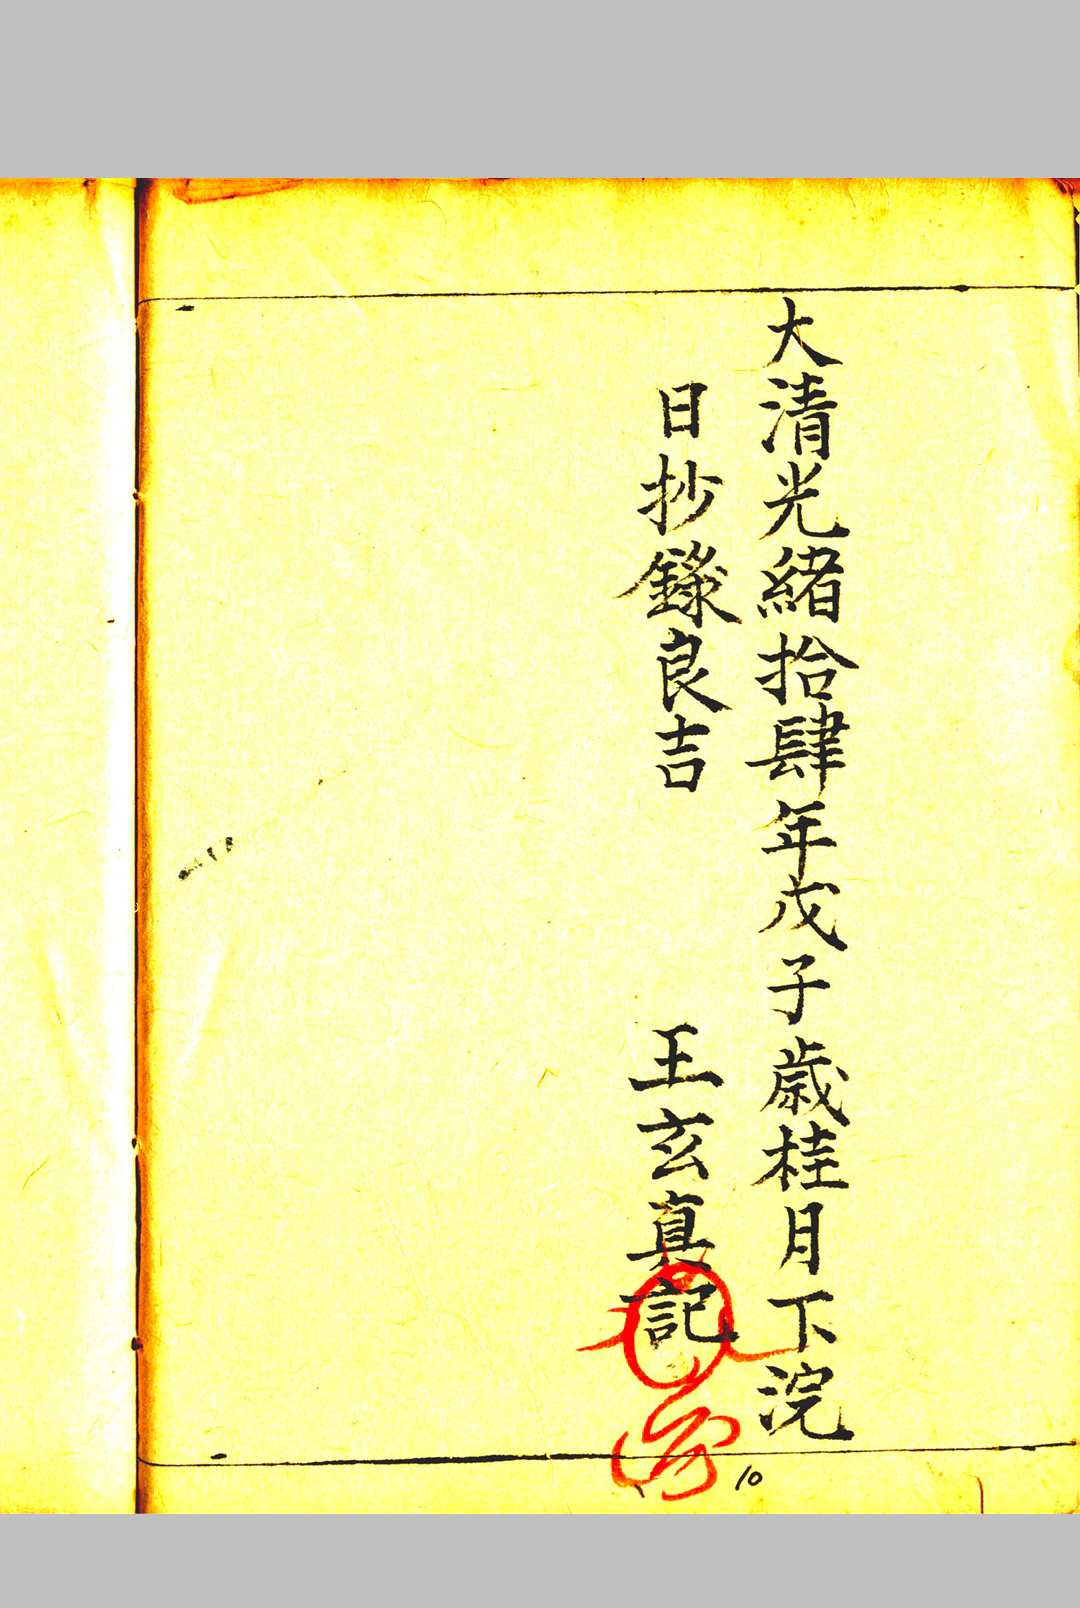 大清光緒拾肆年戊子歲桂月下浣
日抄錄良吉
王玄真記
10